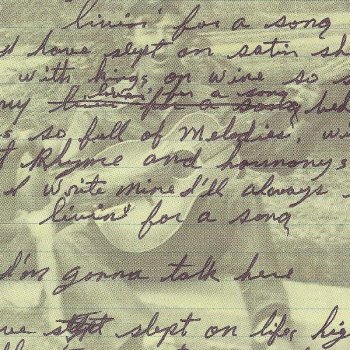 "livin' for a song
have slept on satin
with kings on wine so
my livin' for a song
so full of melodies,
Rhyme and harmony,
I write mine I'll always
livin' for a song
I'm gonna talk here
slept on life,